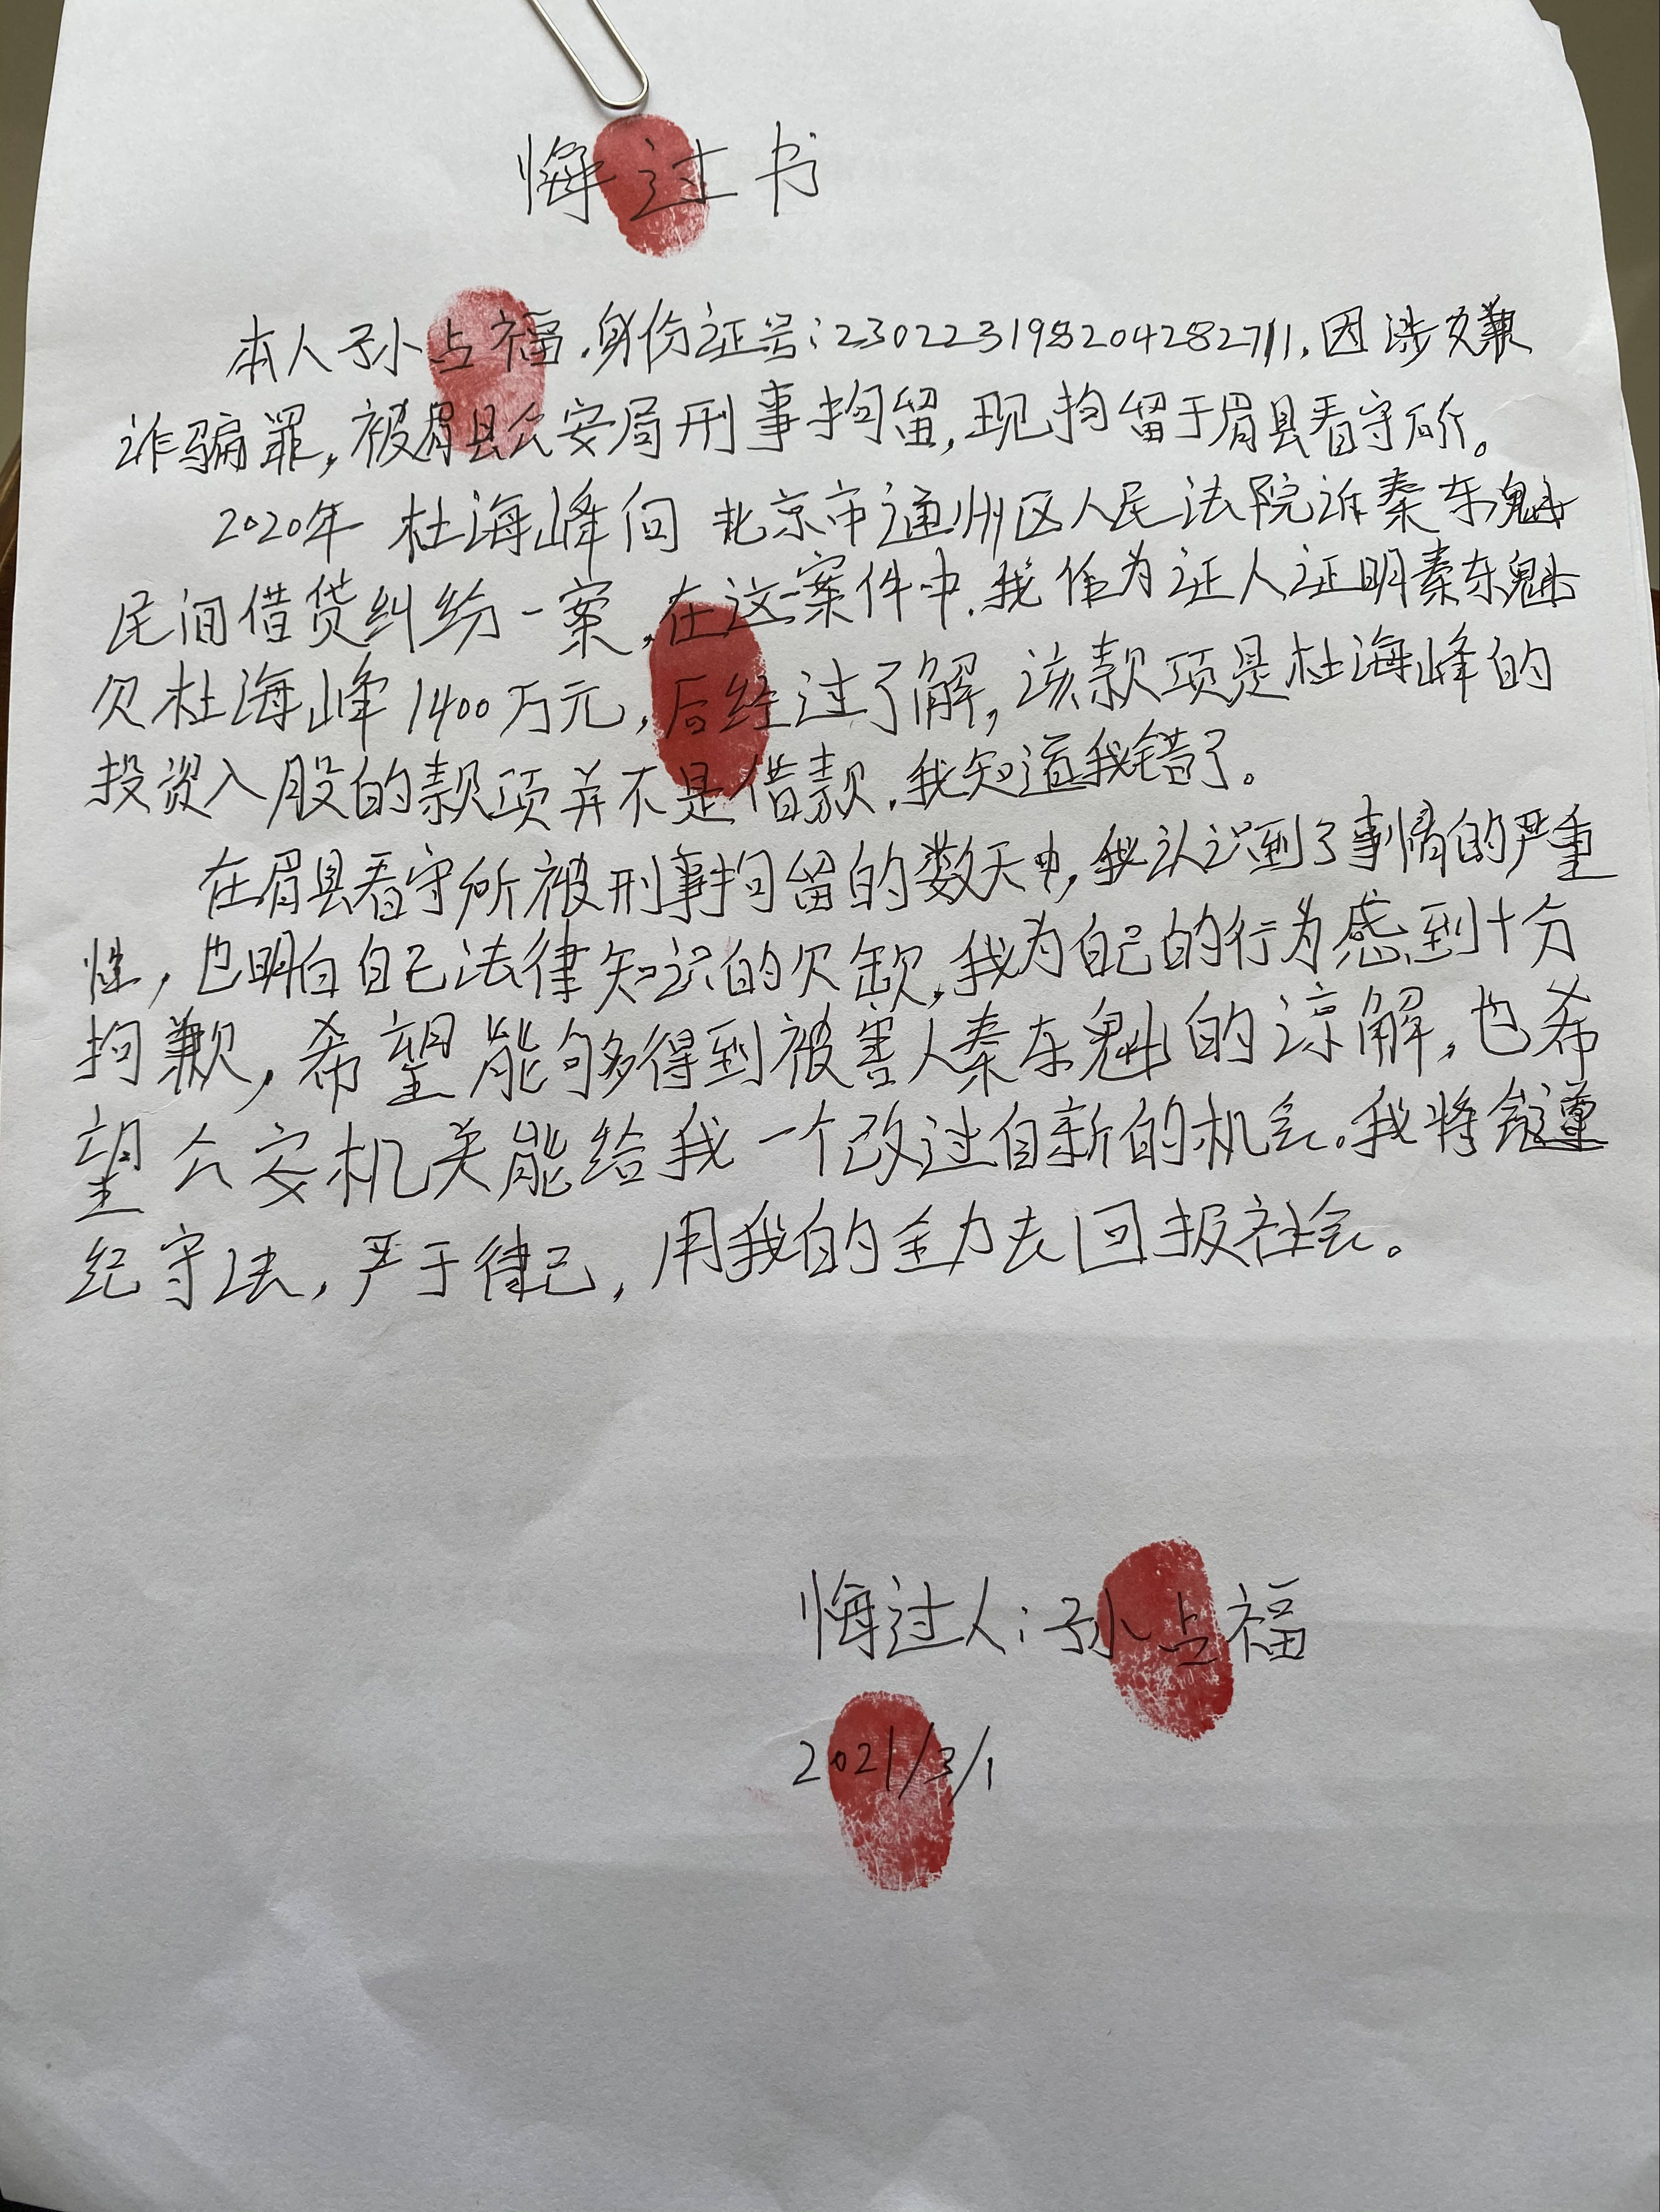 悔过书
本人孙占福.身份证号:230223198204282711.因涉嫌
诈骗罪,被眉县公安局刑事拘留,现拘留于眉县看守所。
2020年 杜海峰向 北京市通州区人民法院诉秦东魁
民间借贷纠纷一案,在这一案件中.我作为证人证明秦东魁
欠杜海峰1400万元,后经过了解,该款项是杜海峰的
投资入股的款项并不是借款.我知道我错了。
在眉县看守所被刑事拘留的数天中,我认识到了事情的严重
性,也明白自己法律知识的欠缺,我为自己的行为感到十分
拘歉,希望能够得到被害人秦东魁的谅解,也希
望公安机关能给我一个改过自新的机会。我将遵
纪守法,严于律己,用我的全力去回报社会。
悔过人:孙占福
2021/3/1